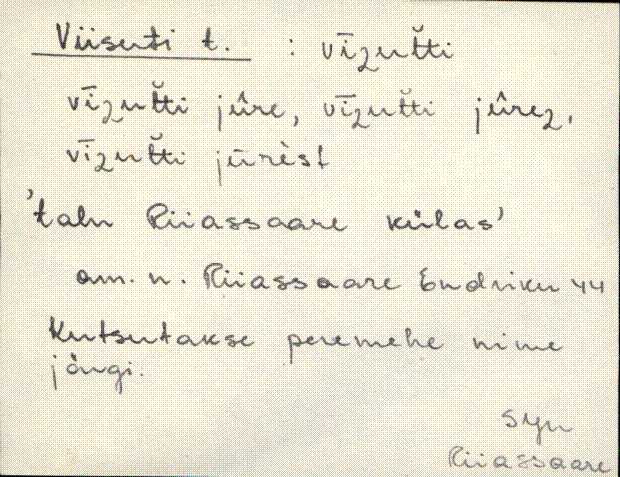 Viisuti t. : vīzut̆ti
vīzut̆ti jûre, vīzut̆ti jûrez,
vīzut̆ti jūrèst
'talu Riiassaare külas'
am. n. Riiassaare Endriku 44
Kutsutakse peremehe nime
järgi.
Syn
Riiassaare